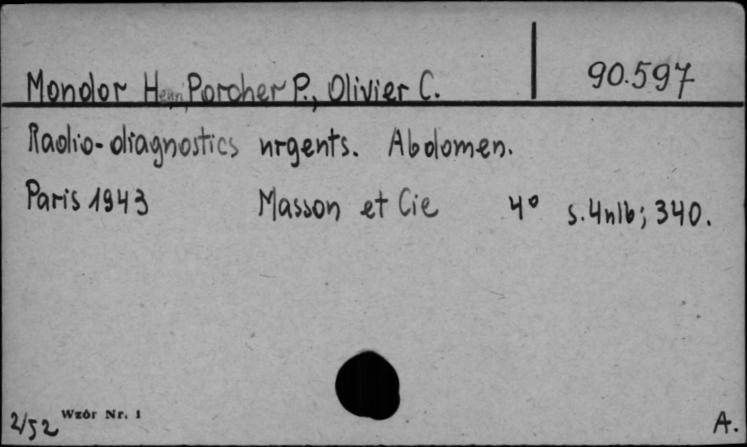 Mondor Henri, Porcher P., Olivier C.
90.597
Radio-diagnostics urgents. Abdomen.
Paris 1943 Masson et Cie 4° s. 4nlb; 340.
2/52 Wzór Nr. 1
A.